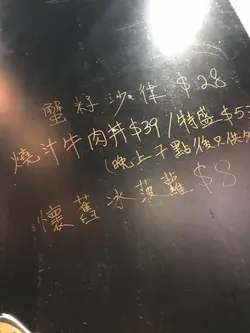 蟹籽沙律 $28
燒汁牛肉丼$39/特盛$5
(晚上十點後只供外
懷舊冰菠蘿 $8